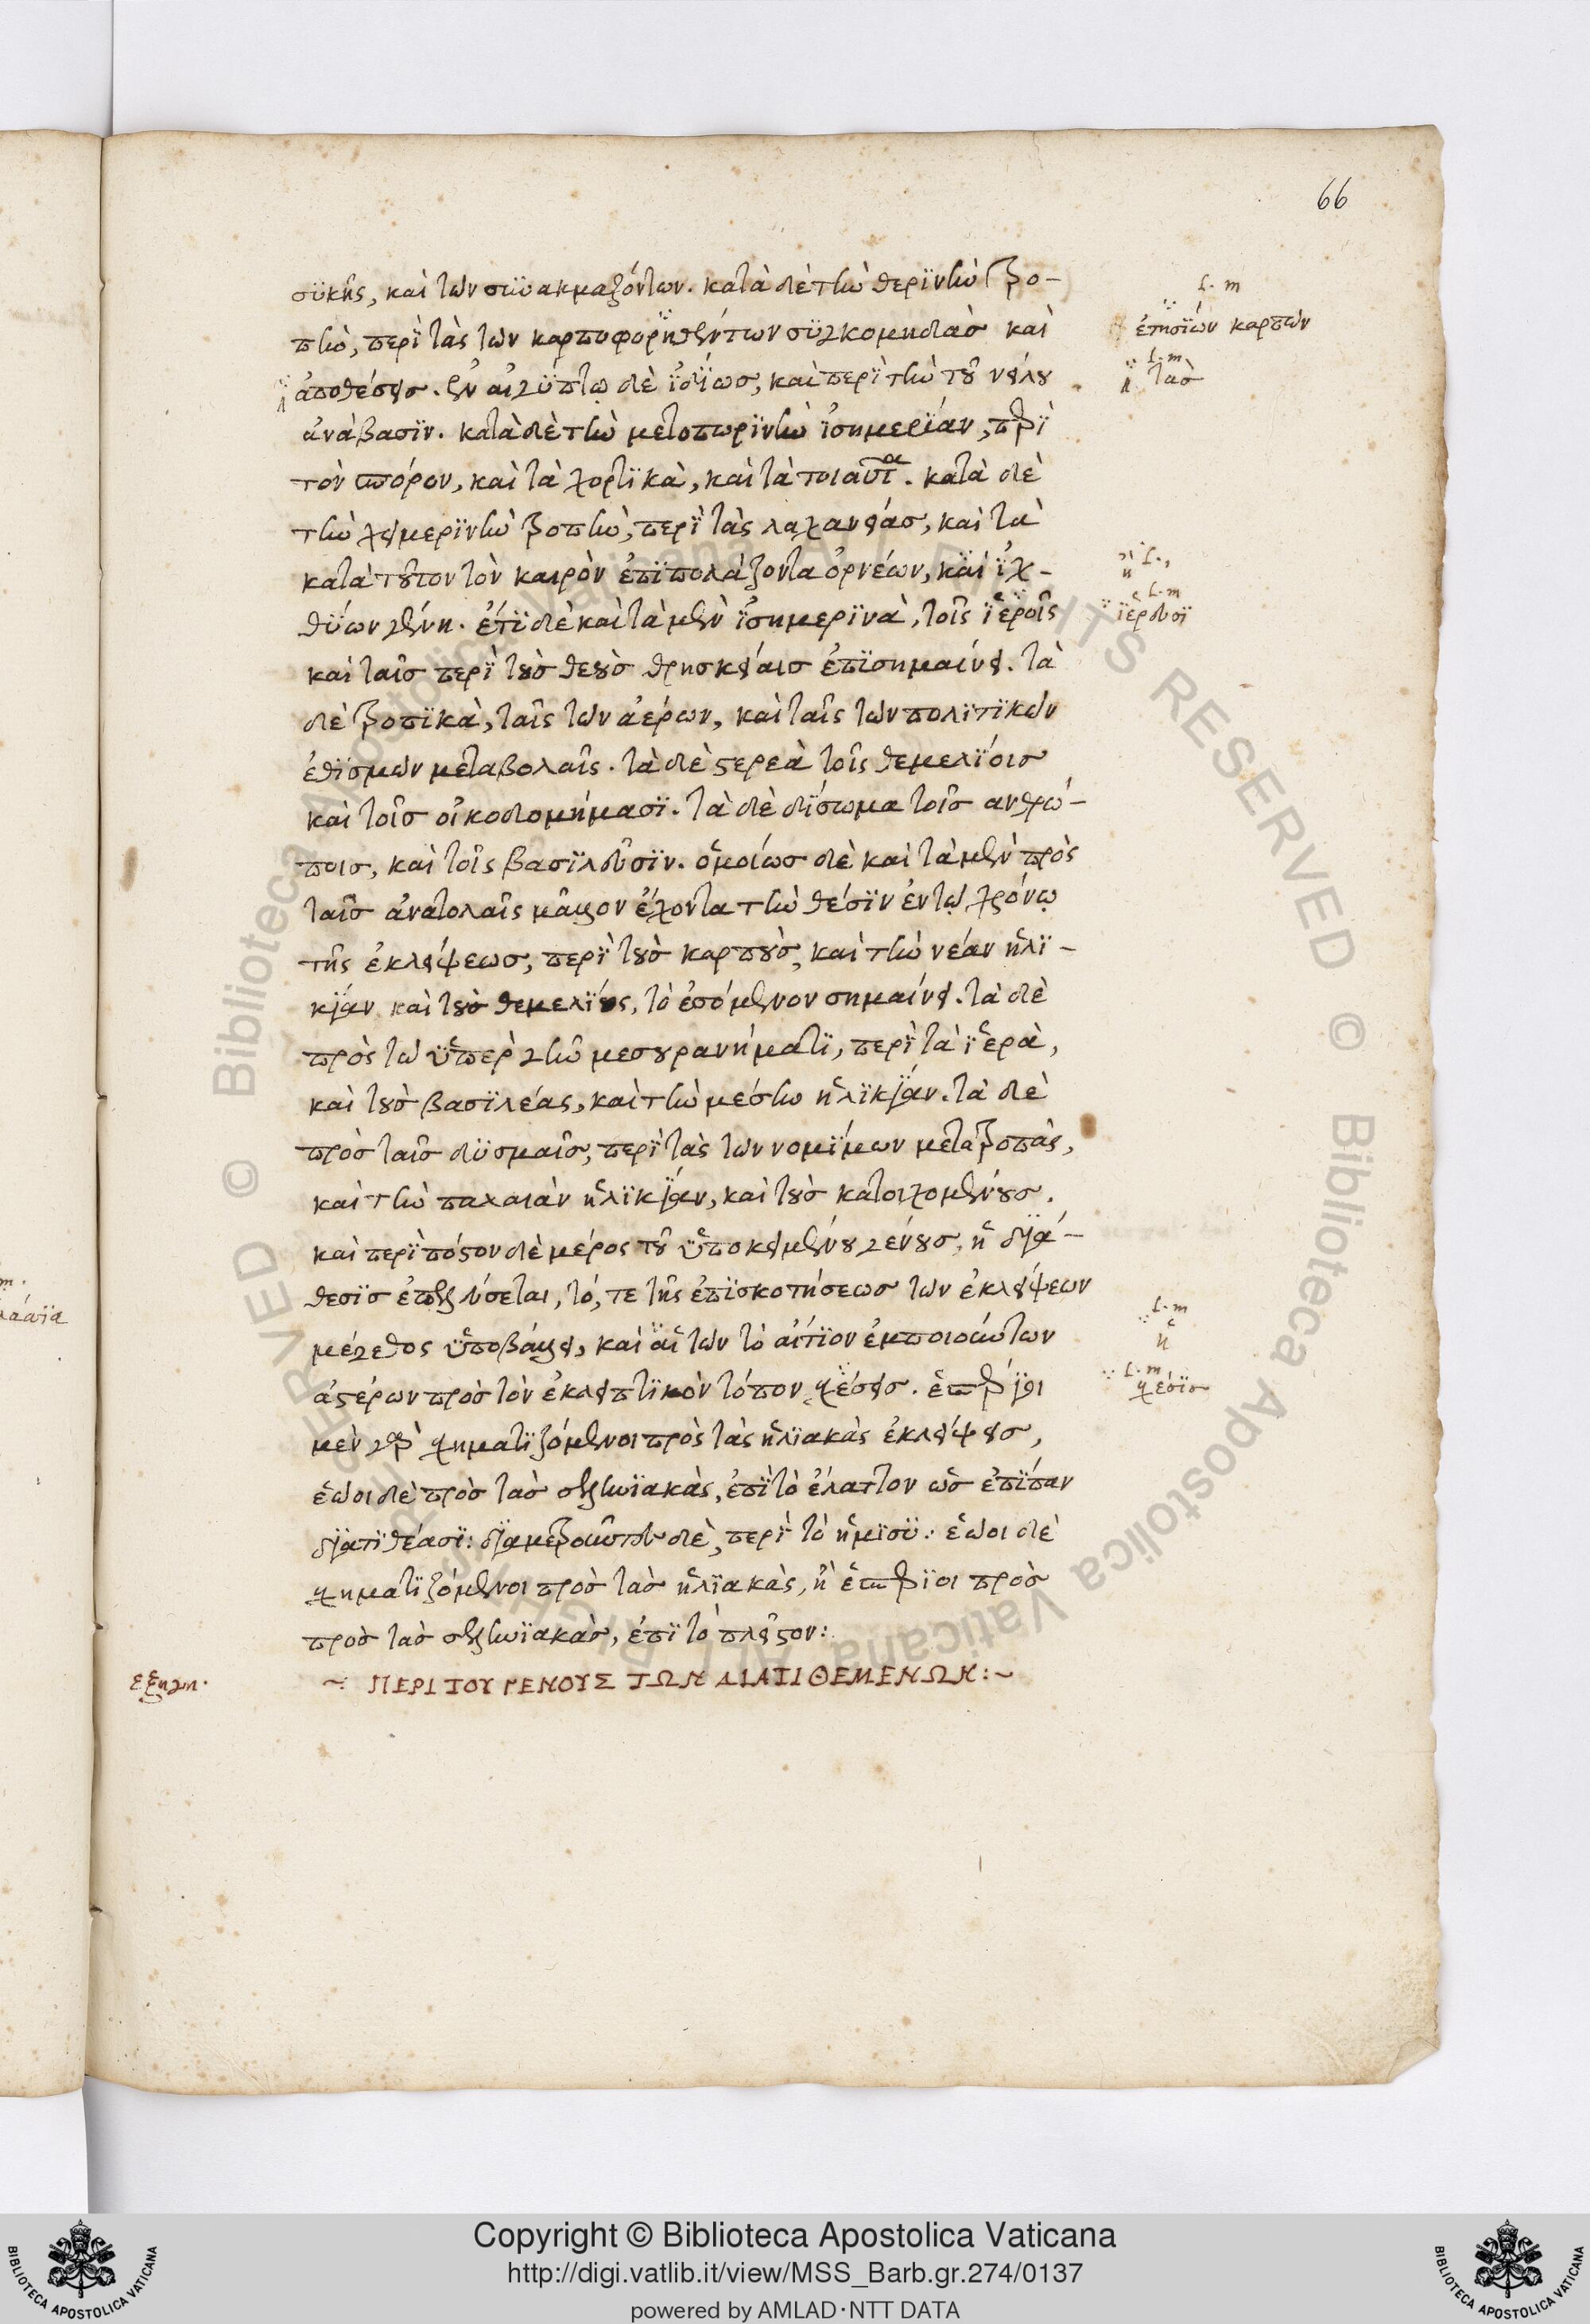 66
συκῆς, καὶ τῶν συνακμαζόντων. κατὰ δὲ τὴν θερϊνὴν τρο-
πὴν, περὶ τὰς τῶν καρποφορηθέντων συγκομιδὰς καὶ
ἀποθέσεις. ἐν αἰγύπτῳ δὲ ἰδΐως, καὶ περὶ τὴν τοῦ νείλου
ἀνάβασϊν. κατὰ δὲ τὴν μετοπωρϊνὴν ἰσημερίαν, περὶ
τὸν σπόρον, καὶ τὰ χορτϊκὰ, καὶ τὰ τοιαῦτα. κατὰ δὲ
τὴν χειμερϊνὴν τροπὴν, περὶ τὰς λαχανείας, καὶ τὰ
κατὰ τοῦτον τὸν καιρὸν ἐπϊπολάζοντα ὀρνέων, καὶ ἰχ-
θύων γένη. ἔτϊ δὲ καὶ τὰ μὲν ἰσημερϊνὰ, τοῖς ἱεροῖς
καὶ ταῖς περὶ τοὺς θεοὺς θρησκείαις ἐπϊσημαίνει. τὰ
δὲ τροπϊκὰ, ταῖς τῶν ἀέρων, καὶ ταῖς τῶν πολϊτϊκῶν
ἐθϊσμῶν μεταβολαῖς. τὰ δὲ στερεὰ τοῖς θεμελΐοις
καὶ τοῖς οἰκοδομήμασϊ. τὰ δὲ δΐσωμα τοῖς ανθρώ-
ποις, καὶ τοῖς βασϊλεῦσϊν. ὁμοίως δὲ καὶ τὰ μὲν πρὸς
ταῖς ἀνατολαῖς μᾶλλον ἔχοντα τὴν θέσϊν ἐν τῷ χρόνῳ
τῆς ἐκλείψεως, περὶ τοὺς καρποὺς, καὶ τὴν νέαν ἡλϊ-
κΐαν καὶ τοὺς θεμελΐους, τὸ ἐσόμενον σημαίνει. τὰ δὲ
πρὸς τῷ ὑπὲρ γῆν μεσουρανήματϊ, περὶ τὰ ἱερὰ,
καὶ τοὺς βασϊλέας, καὶ τὴν μέσην ἡλϊκΐαν. τὰ δὲ
πρὸς ταῖς δυσμαῖς, περὶ τὰς τῶν νομΐμων μετατροπὰς,
καὶ τὴν παλαιὰν ἡλϊκΐαν, καὶ τοὺς κατοιχομένους.
καὶ περὶ πόστον δὲ μέρος τοῦ ὑποκειμένου γένους, ἡ δϊά-
θεσϊς ἐπελεύσεται, τό, τε τῆς ἐπϊσκοτήσεως τῶν ἐκλείψεων
μέγεθος ὑποβάλλει, καὶ αἱ τῶν τὸ αἴτϊον ἐμποιούντων
ἀστέρων πρὸς τὸν ἐκλειπτϊκὸν τόπον σχέσεις. ἑσπέρϊοι
μὲν γὰρ σχηματϊζόμενοι πρὸς τὰς ἡλϊακὰς ἐκλείψεις,
ἑῷοι δὲ πρὸς τὰς σεληνϊακὰς, ἐπὶ τὸ ἔλαττον ὡς ἐπΐπαν
δϊατϊθέασϊ: δϊαμετροῦντες δὲ, περὶ τὸ ἥμϊσυ: ἑῷοι δὲ
σχηματϊζόμενοι πρὸς τὰς ἡλϊακὰς, ἢ ἑσπέρϊοι πρὸς
πρὸς τὰς σεληνϊακὰς, ἐπὶ τὸ πλεῖστον:
~: ΠΕΡΙ ΤΟΥ ΓΕΝΟΥΣ ΤΩΝ ΔΙΑΤΙΘΕΜΕΝΩΝ:~
εξηγη.
ἐτησΐων καρπῶν
τὰς
ἢ
ἱερεῦσϊ
ἡ
σχέσϊς
Copyright © Biblioteca Apostolica Vaticana
http://digi.vatlib.it/view/MSS_Barb.gr.274/0137
powered by AMLAD·NTT DATA